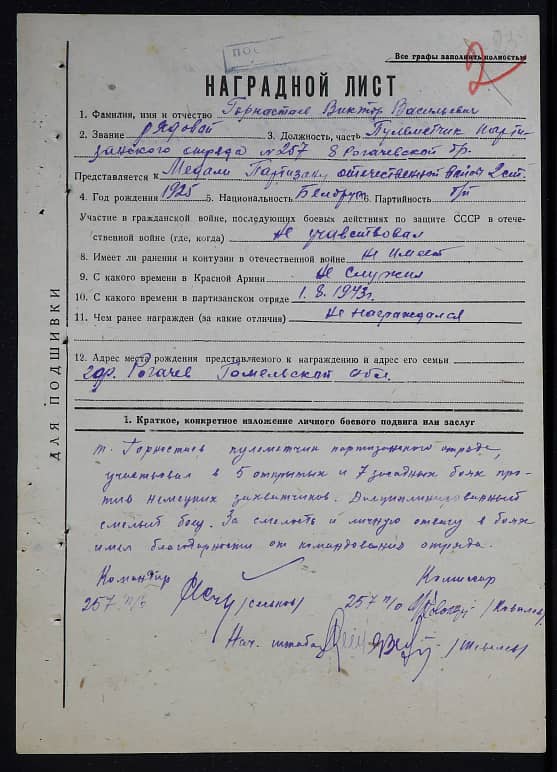 ПОС
Все графы заполнить полностью
2
НАГРАДНОЙ ЛИСТ
1. Фамилия, имя и отчество Горностаев Виктор Васильевич
2. Звание рядовой 3. Должность, часть Пулеметчик парти-
занского отряда №257 8 Рогачевской бр.
Представляется к Медали Партизану отечественной войны 2 ст.
4. Год рождения 1925 5. Национальность Белорус 6. Партийность б/п
Участие в гражданской войне, последующих боевых действиях по защите СССР в отече-
ственной войне (где, когда) Не учавствовал
8. Имеет ли ранения и контузии в отечественной войне Не имеет
9. С какого времени в Красной Армии Не служил
10. С какого времени в партизанском отряде 1.8.1943г.
11. Чем ранее награжден (за какие отличия) Не награждался
12. Адрес места рождения представляемого к награждению и адрес его семьи
гор. Рогачев Гомельской обл.
ДЛЯ ПОДШИВКИ
1. Краткое, конкретное изложение личного боевого подвига или заслуг
т. Горностаев пулеметчик партизанского отряда,
участвовал в 5 открытых и 7 засадных боях про-
тив немецких захватчиков. Дисциплинированный
смелый боец. За смелость и личную отвагу в боях
имел благодарности от командования отряда.
Командир Комиссар
257 п/о 257 п/о
Нач. штаба